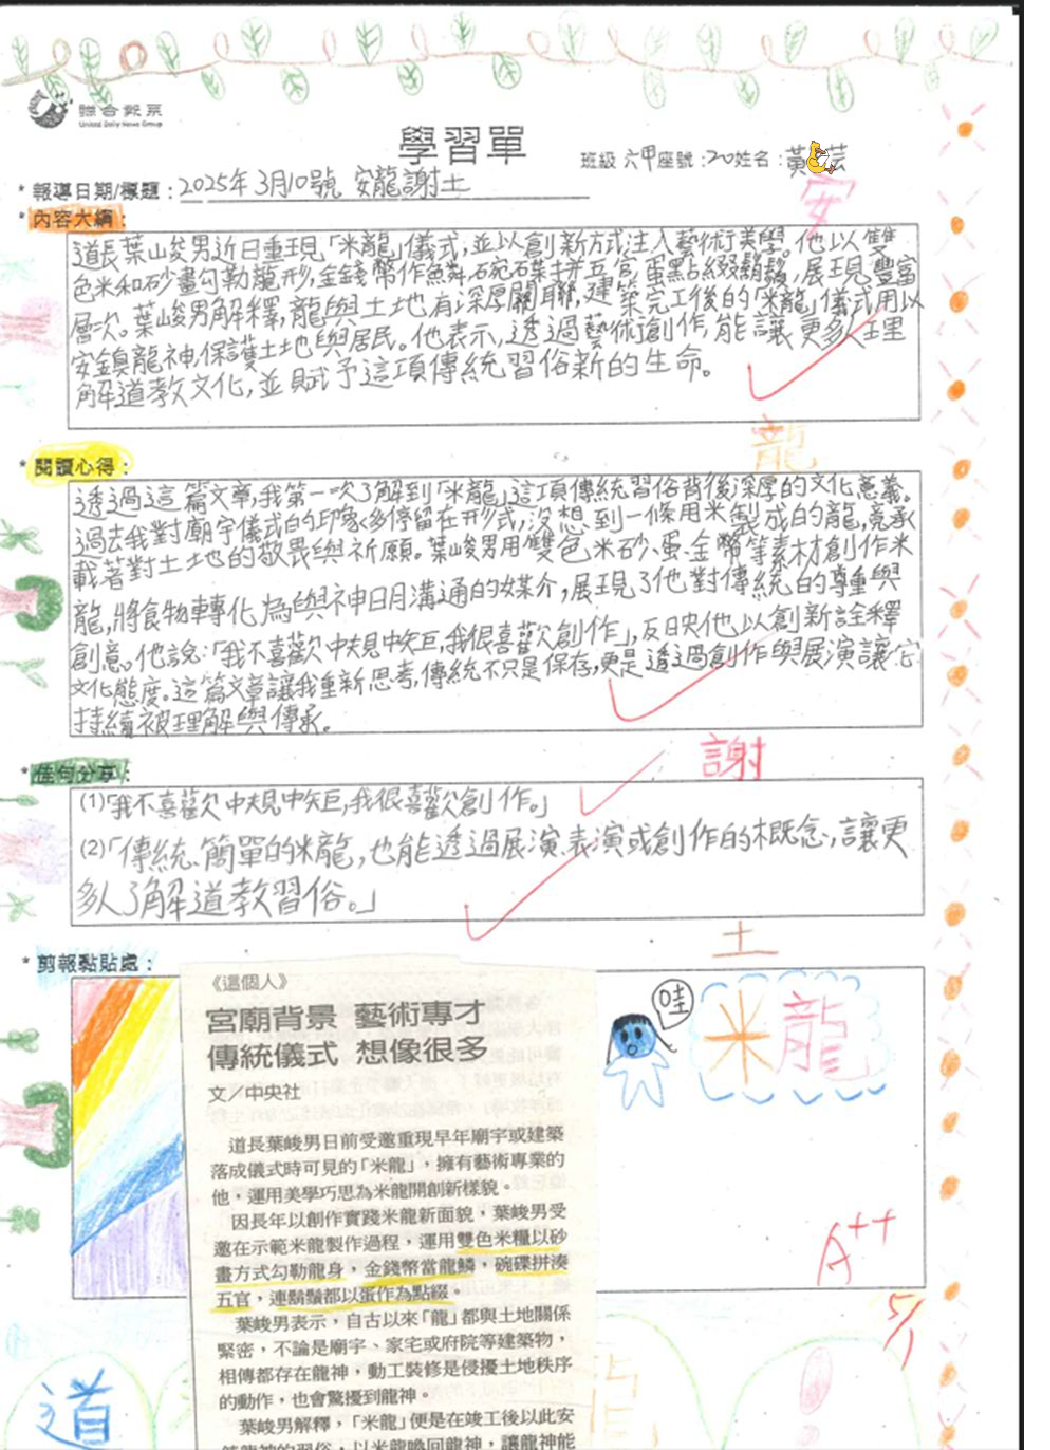 聯合報系
United Daily News Group
學習單
班級 六甲 座號:20 姓名:黃 芸
* 報導日期/標題:2025年3月10號 安龍謝土
* 內容大綱:
道長葉山峻男近日重現「米龍」儀式,並以創新方式注入藝術美學。他以雙
色米和砂畫勾勒龍形,金錢幣作魚鱗,碗石葉拼五官,蛋點綴鬍鬚,展現豐富
層次。葉峻男解釋,龍與土地有深厚關聯,建築完工後的「米龍」儀式用以
安鎮龍神,保護土地與居民。他表示,透過藝術創作,能讓更多人理
解道教文化,並賦予這項傳統習俗新的生命。
安
龍
* 閱讀心得:
透過這篇文章,我第一次了解到「米龍」這項傳統習俗背後深厚的文化意義。
過去我對廟宇儀式的印象多停留在形式,沒想到一條用米製成的龍,竟承
載著對土地的敬畏與祈願。葉峻男用雙色米砂、蛋、金幣等素材創作米
龍,將食物轉化為與神明溝通的媒介,展現了他對傳統的尊重與
創意。他說:「我不喜歡中規中矩,我很喜歡創作」,反映他以創新詮釋
文化態度。這篇文章讓我重新思考,傳統不只是保存,更是透過創作與展演讓它
持續被理解與傳承。
謝
* 佳句分享:
(1)「我不喜歡中規中矩,我很喜歡創作。」
(2)「傳統、簡單的米龍,也能透過展演、表演或創作的概念,讓更
多人了解道教習俗。」
土
* 剪報黏貼處:
《這個人》
宮廟背景 藝術專才
傳統儀式 想像很多
文/中央社
道長葉峻男日前受邀重現早年廟宇或建築
落成儀式時可見的「米龍」,擁有藝術專業的
他,運用美學巧思為米龍開創新樣貌。
因長年以創作實踐米龍新面貌,葉峻男受
邀在示範米龍製作過程,運用雙色米糧以砂
畫方式勾勒龍身,金錢幣當龍鱗,碗碟拼湊
五官,連鬍鬚都以蛋作為點綴。
葉峻男表示,自古以來「龍」都與土地關係
緊密,不論是廟宇、家宅或府院等建築物,
相傳都存在龍神,動工裝修是侵擾土地秩序
的動作,也會驚擾到龍神。
葉峻男解釋,「米龍」便是在竣工後以此安
鎮龍神的習俗,以米龍喚回龍神,讓龍神能
哇
米龍
A++
5/1
道